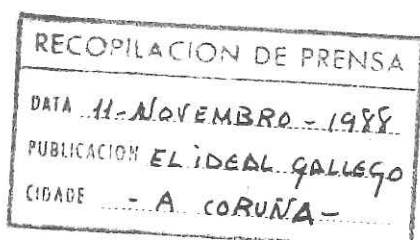 RECOPILACION DE PRENSA
DATA 11-NOVEMBRO-1988
PUBLICACIÓN EL IDEAL GALLEGO
CIDADE - A CORUÑA -